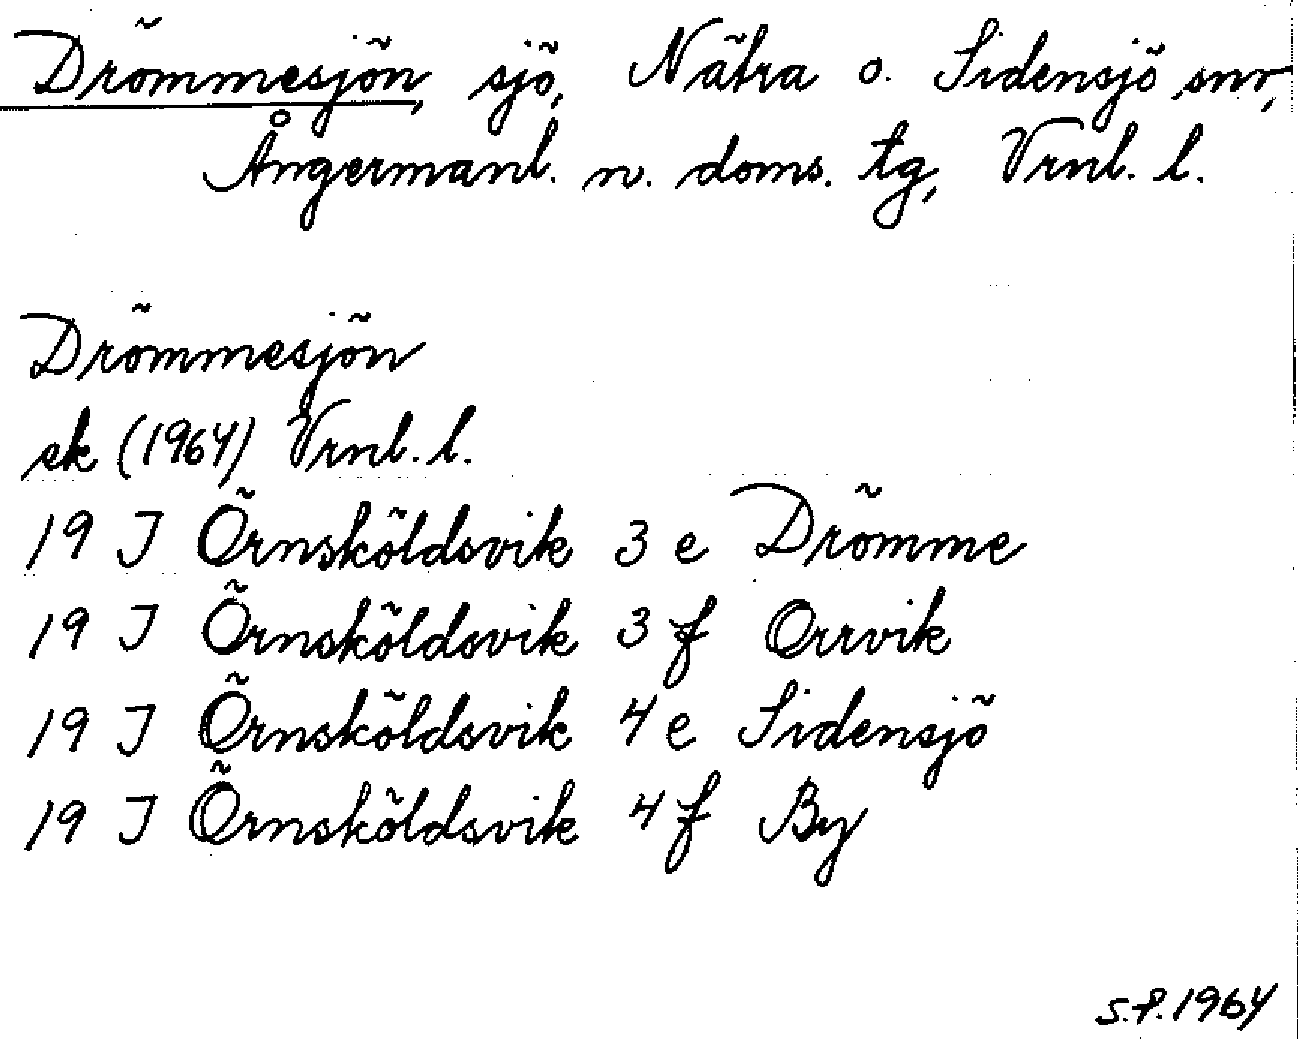 Drömmesjön, sjö, Nätra o. Sidensjö snr,
Ångermanl. n. doms. tg, Vrnl. l.
Drömmesjön
ek (1964) Vrnl. l.
19 J Örnsköldsvik 3 e Drömme
19 J Örnsköldsvik 3 f Orrvik
19 J Örnsköldsvik 4 e Sidensjö
19 J Örnsköldsvik 4 f By
S.P. 1964